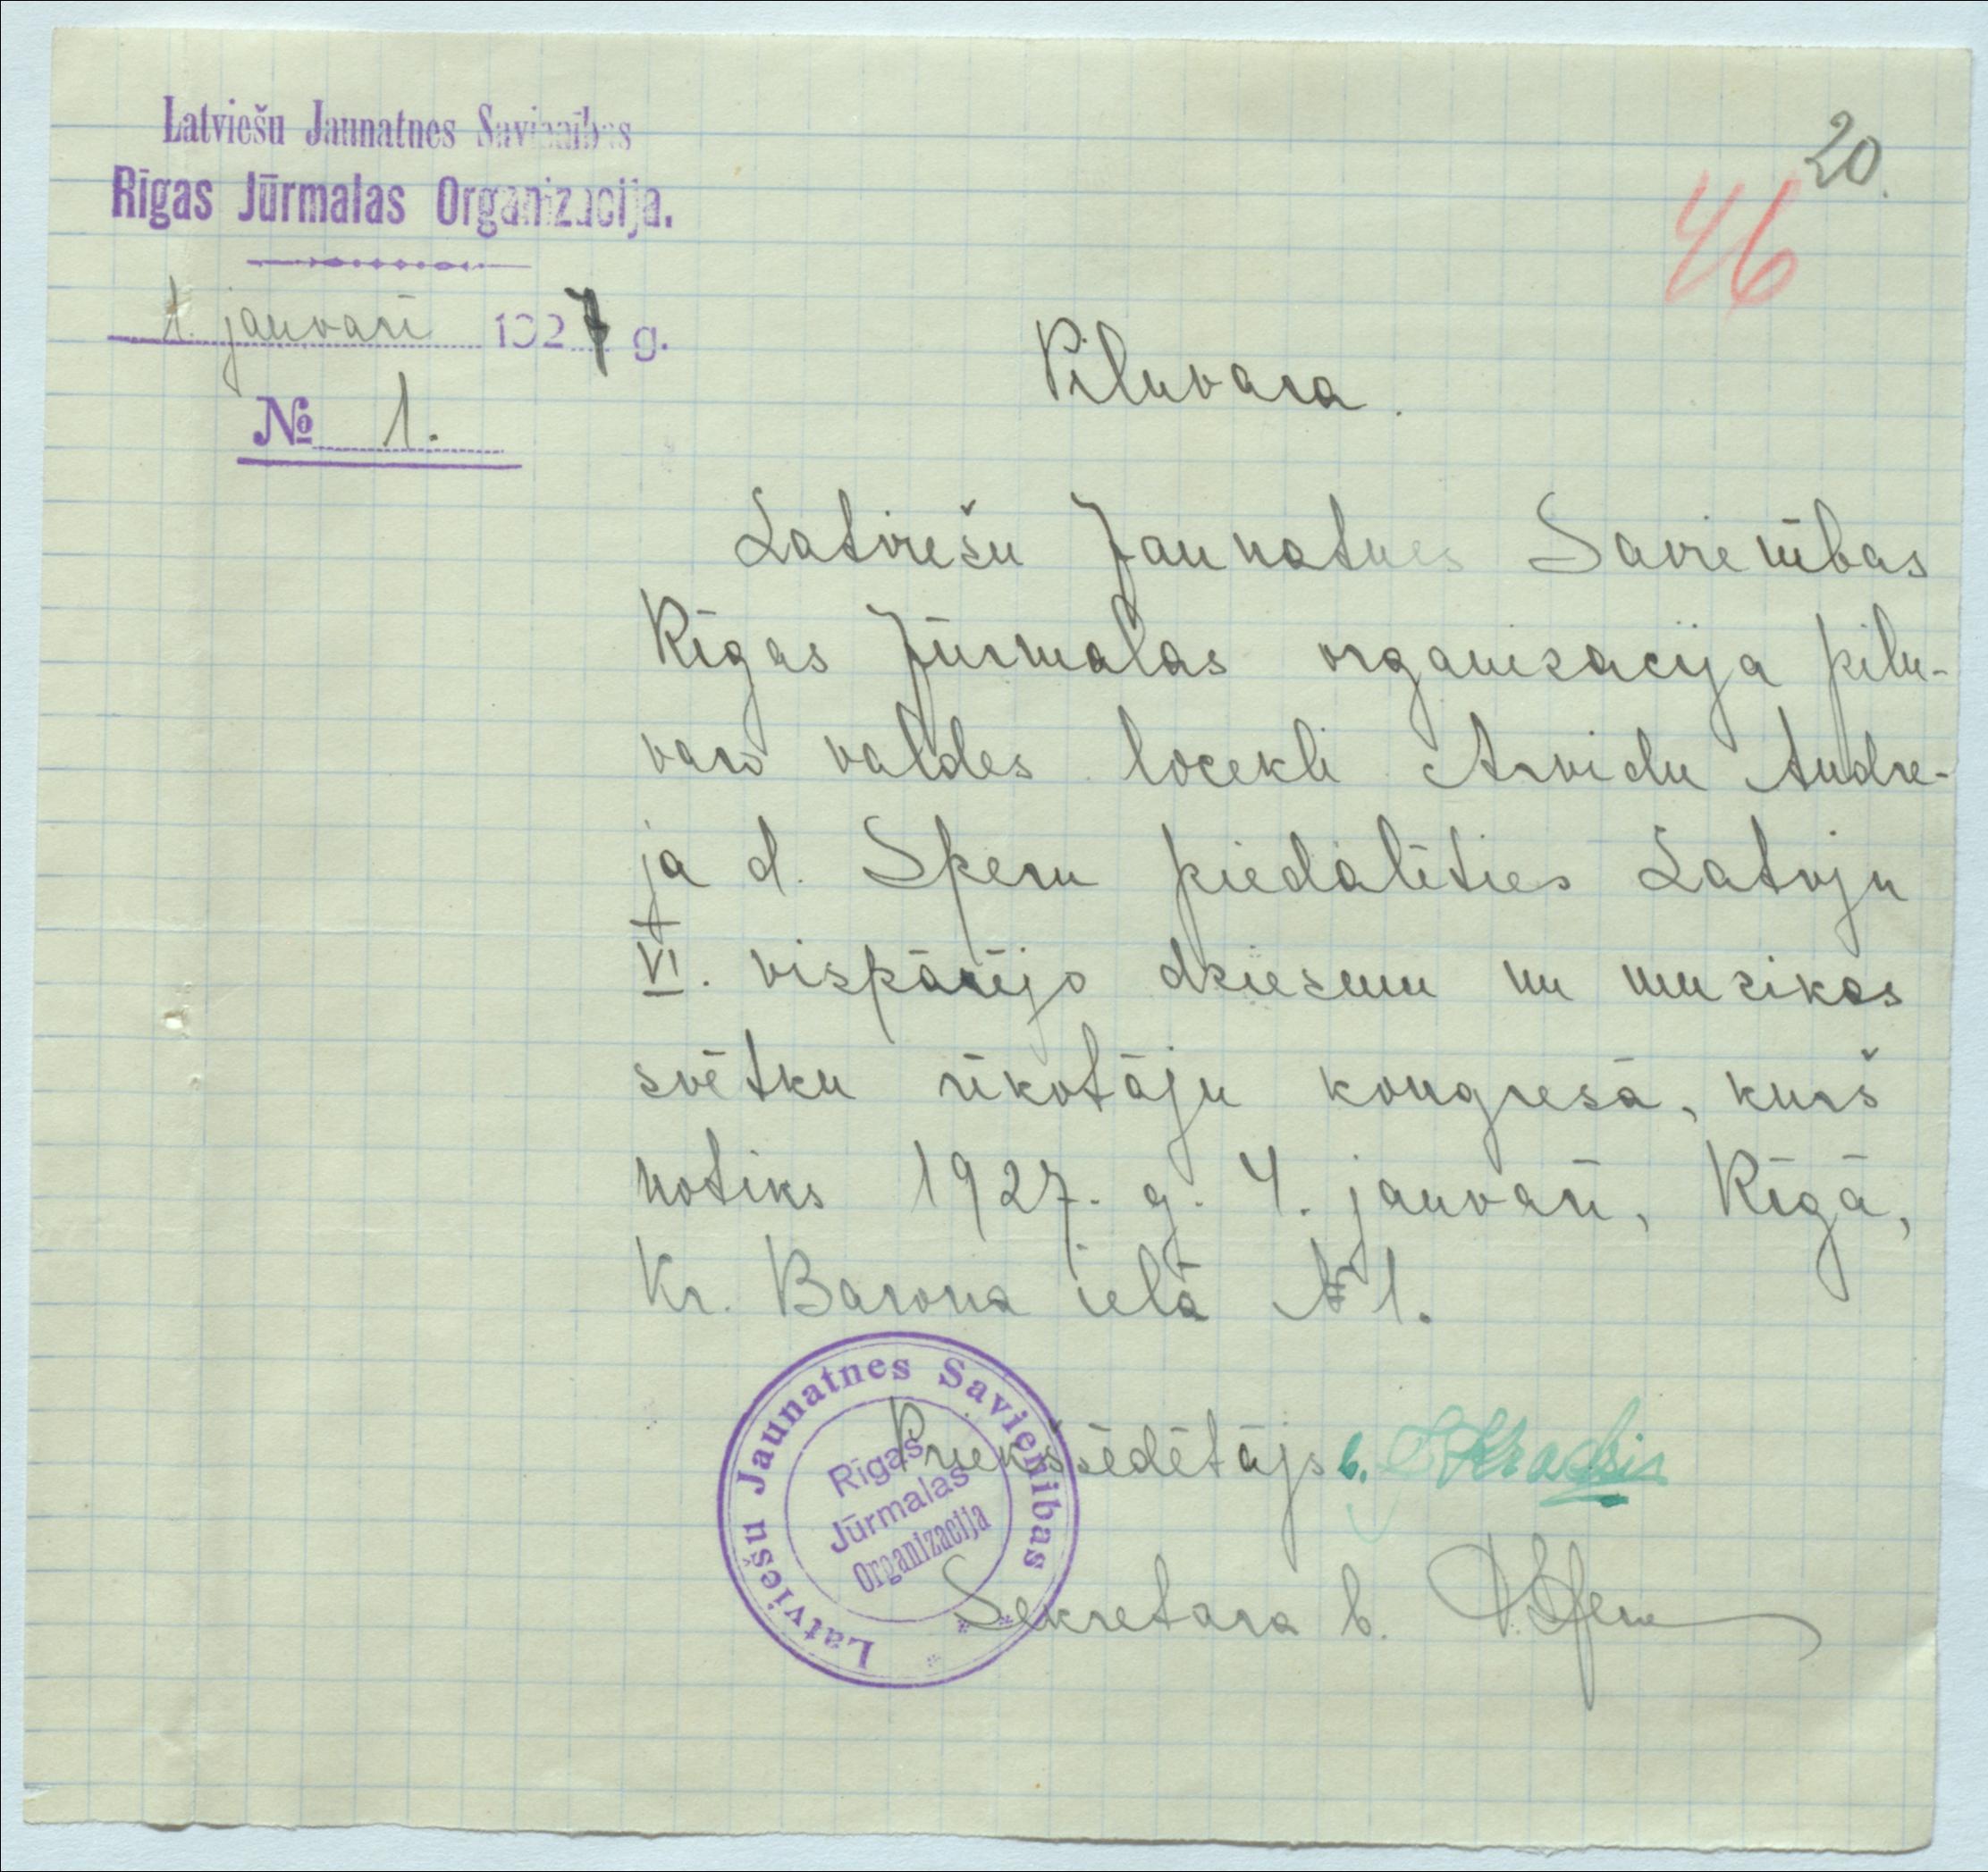 Latviešu Jaunatnes Savienības
Rīgas Jūrmalas Organizācija.
1. janvarī 1927 g.
№ 1.
20.
46
Pilnvara.
Latviešu Jaunatnes Savienības
Rīgas Jūrmalas organizacija piln-
varo valdes locekli Arvidu Andre-
ja d. Speru piedalīties Latvju
VI. vispārējo dziesmu un muzikas
svētku rīkotāju kongresā, kurš
notiks 1927. g. 4. janvarī, Rīgā,
Kr. Barona ielā № 1.
Latviešu Jaunatnes Savienības
Rīgas
Jūrmalas
Organizacija
Priekšsēdētājs b.
Sekretara b.